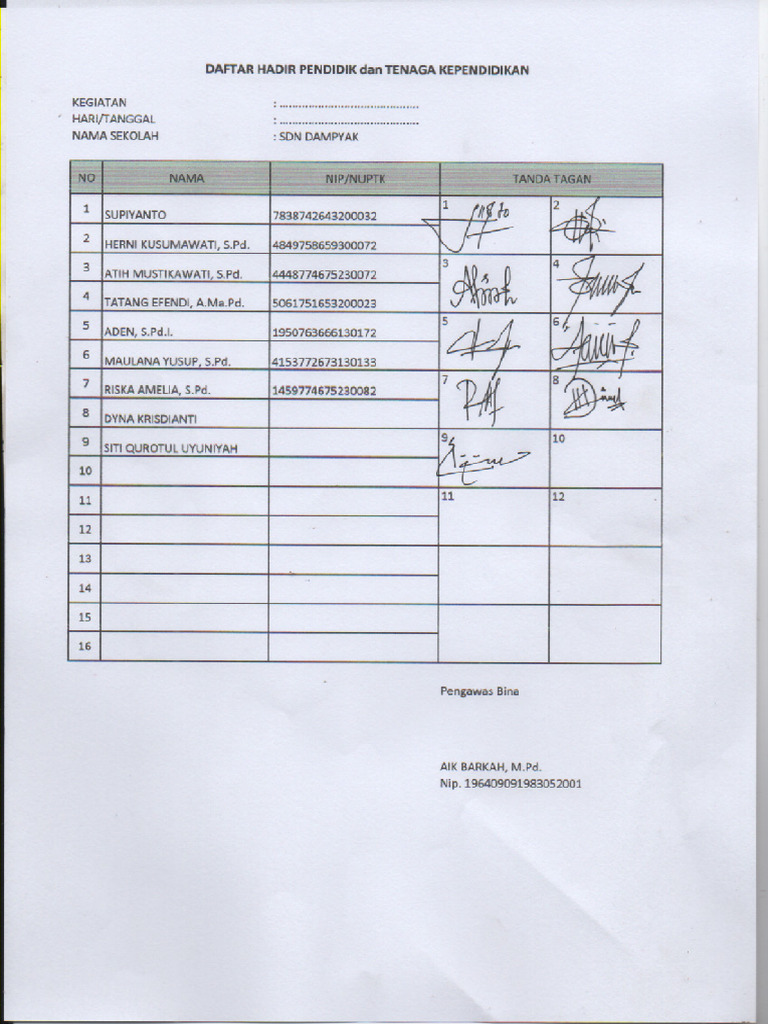 DAFTAR HADIR PENDIDIK dan TENAGA KEPENDIDIKAN
KEGIATAN : ............................................
HARI/TANGGAL : ............................................
NAMA SEKOLAH : SDN DAMPYAK
NO NAMA NIP/NUPTK TANDA TAGAN
1 SUPIYANTO 7838742643200032 1 2
2 HERNI KUSUMAWATI, S.Pd. 4849758659300072
3 ATIH MUSTIKAWATI, S.Pd. 4448774675230072 3 4
4 TATANG EFENDI, A.Ma.Pd. 5061751653200023
5 ADEN, S.Pd.I. 1950763666130172 5 6
6 MAULANA YUSUP, S.Pd. 4153772673130133
7 RISKA AMELIA, S.Pd. 1459774675230082 7 8
8 DYNA KRISDIANTI
9 SITI QUROTUL UYUNIYAH 9 10
10
11 11 12
12
13
14
15
16
Pengawas Bina
AIK BARKAH, M.Pd.
Nip. 196409091983052001